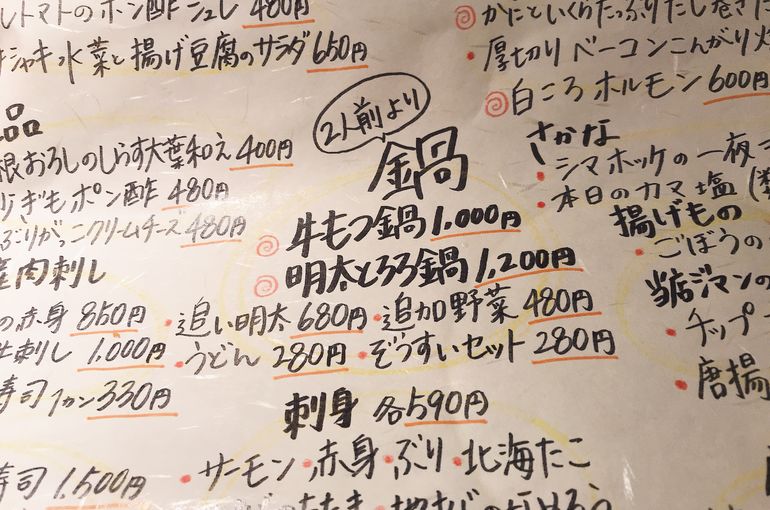 トマトのポン酢ジュレ 480円
シャキ水菜と揚げ豆腐のサラダ 650円
品
根おろしのしらす大葉和え 400円
ぎもポン酢 480円
ぶりがっこクリームチーズ 480円
肉刺し
の赤身 850円
刺し 1.000円
寿司 1カン 330円
寿司 1.500円
2人前より
鍋
牛もつ鍋 1.000円
明太とろろ鍋 1,200円
・追い明太 680円・追加野菜 480円
・うどん 280円・ぞうすいセット 280円
刺身 各590円
サーモン・赤身・ぶり・北海たこ
かにといくらたっぷりだし巻き
・厚切りベーコンこんがり
白ころホルモン 600円
さかな
・シマホッケの一夜
・本日のカマ塩
揚げもの
・ごぼうの
当店ジマンの
・チップ
・唐揚